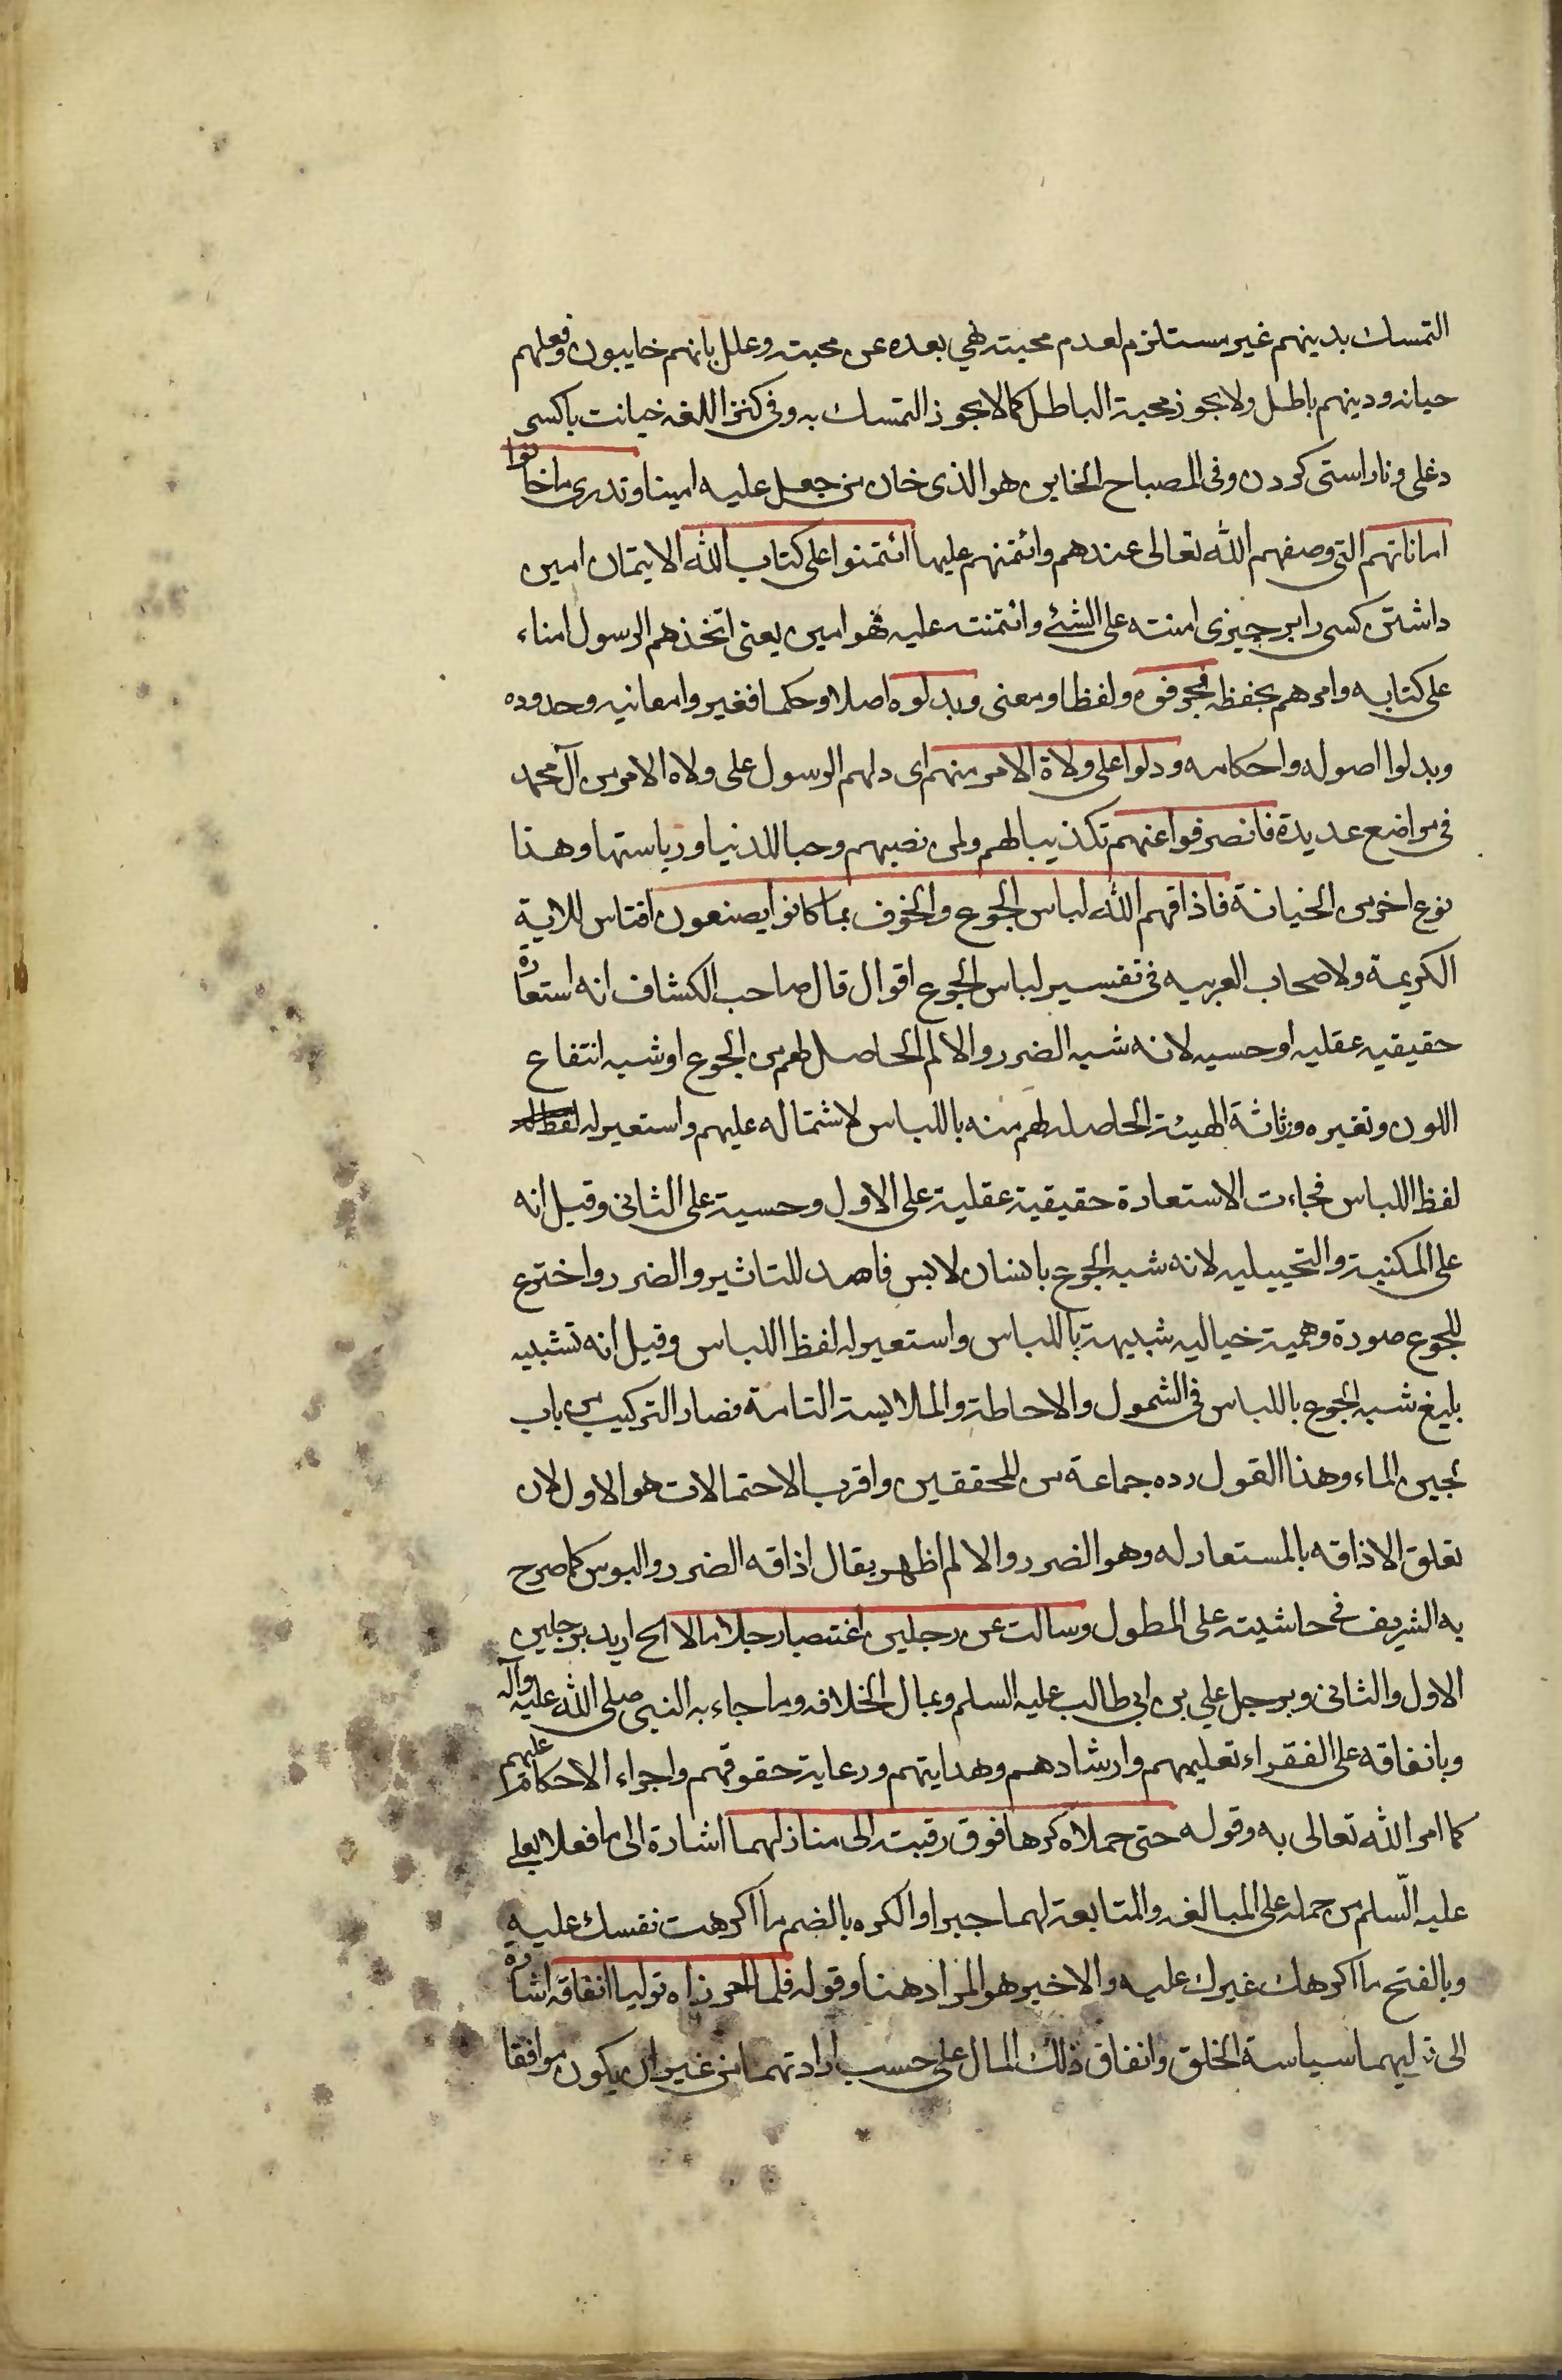 التمسك بدينهم غير مستلزم لعدم محبته فهي بعده عن محبته وعلل بانهم خايبون وفعلهم
حيانه ودينهم باطل ولا يجوز محبة الباطل كما لا يجوز التمسك به وفي كنز اللغه خيانت باكسى
دغلى وناراستى كردن وفي المصباح الخاين هو الذى خان من جعل عليه امينا وتدرى ما خانوا
اماناتهم التي وصفهم الله تعالى عندهم وائتمنهم عليها ائتمنوا على كتاب الله الايتمان امين
داشتن كسى را بر چيزى امنته على الشئ وائتمنته عليه فهو امين يعنى اتخذهم الرسول امناء
على كتابه وامرهم بحفظه فحرفوه ولفظا ومعنى وبدلوه اصلا وحكما فغيروا معانيه وحدوده
وبدلوا اصوله واحكامه ودلوا على ولاة الامر منهم اى دلهم الرسول على ولاه الامر من آل محمد
في مواضع عديدة فانصرفوا عنهم تكذيبا لهم ولمن نصبهم وحبا للدنيا ورياستها وهذا
نوع اخر من الخيانة فاذاقهم الله لباس الجوع والخوف بما كانوا يصنعون اقتاس للاية
الكريمة ولاصحاب العربيه في تفسير لباس الجوع اقوال قال صاحب الكشاف انه استعارة
حقيقيه عقليه او حسيه لانه شبه الضرر والالم الحاصل لهم من الجوع او شبه انتفاع
اللون وتغيره ورثاثة الهيئة الحاصله لهم منه باللباس لاشتماله عليهم واستعير له
لفظ اللباس فجاءت الاستعارة حقيقية عقلية على الاول وحسية على الثانى وقيل انه
على المكنية والتخييليه لانه شبه الجوع بانسان لابس قاصد للتاثير والضرر واخترع
للجوع صورة وهمية خياليه شبيهة باللباس واستعير له لفظ اللباس وقيل انه تشبيه
بليغ شبه الجوع باللباس في الشمول والاحاطة والملابسة التامة فصار التركيب من باب
لجين الماء وهذا القول رده جماعة من المحققين واقرب الاحتمالات هو الاول لان
تعلق الاذاقه بالمستعار له وهو الضرر والالم اظهر يقال اذاقه الضرر والبوس كما صرح
به الشريف في حاشيته على المطول وسالت عن رجلين اغتصبا رجلا مالا الخ اريد برجلين
الاول والثانى وبرجل علي بن ابى طالب عليه السلم وبمال الخلافه وما جاء به النبي صلى الله عليه وآله
وبانفاقه على الفقراء تعليمهم وارشادهم وهدايتهم ورعاية حقوقهم واجراء الاحكام عليهم
كما امر الله تعالى به وقوله حتى حملاه كرها فوق رقبته الى منازلهما اشارة الى ما فعلا بعلي
عليه السّلم من حمله على المبالغه والمتابعة لهما جبرا والكره بالضم ما اكرهت نفسك عليه
وبالفتح ما اكرهك غيرك عليه والاخير هو المراد هنا وقوله فلما احرزاه توليا انفاقه اشارة
الى توليهما سياسة الخلق وانفاق ذلك المال على حسب ارادتهما من غير ان يكون موافقا